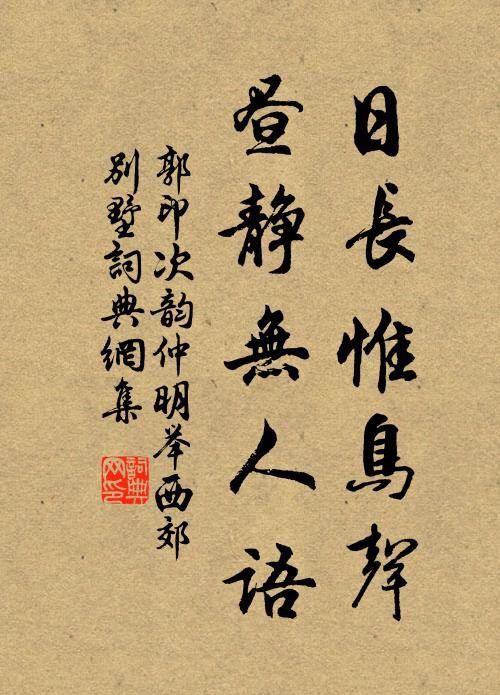 日長惟鳥聲
晝靜無人語
郭印次韵仲明举西郊
别墅詞典網集
詞典网印